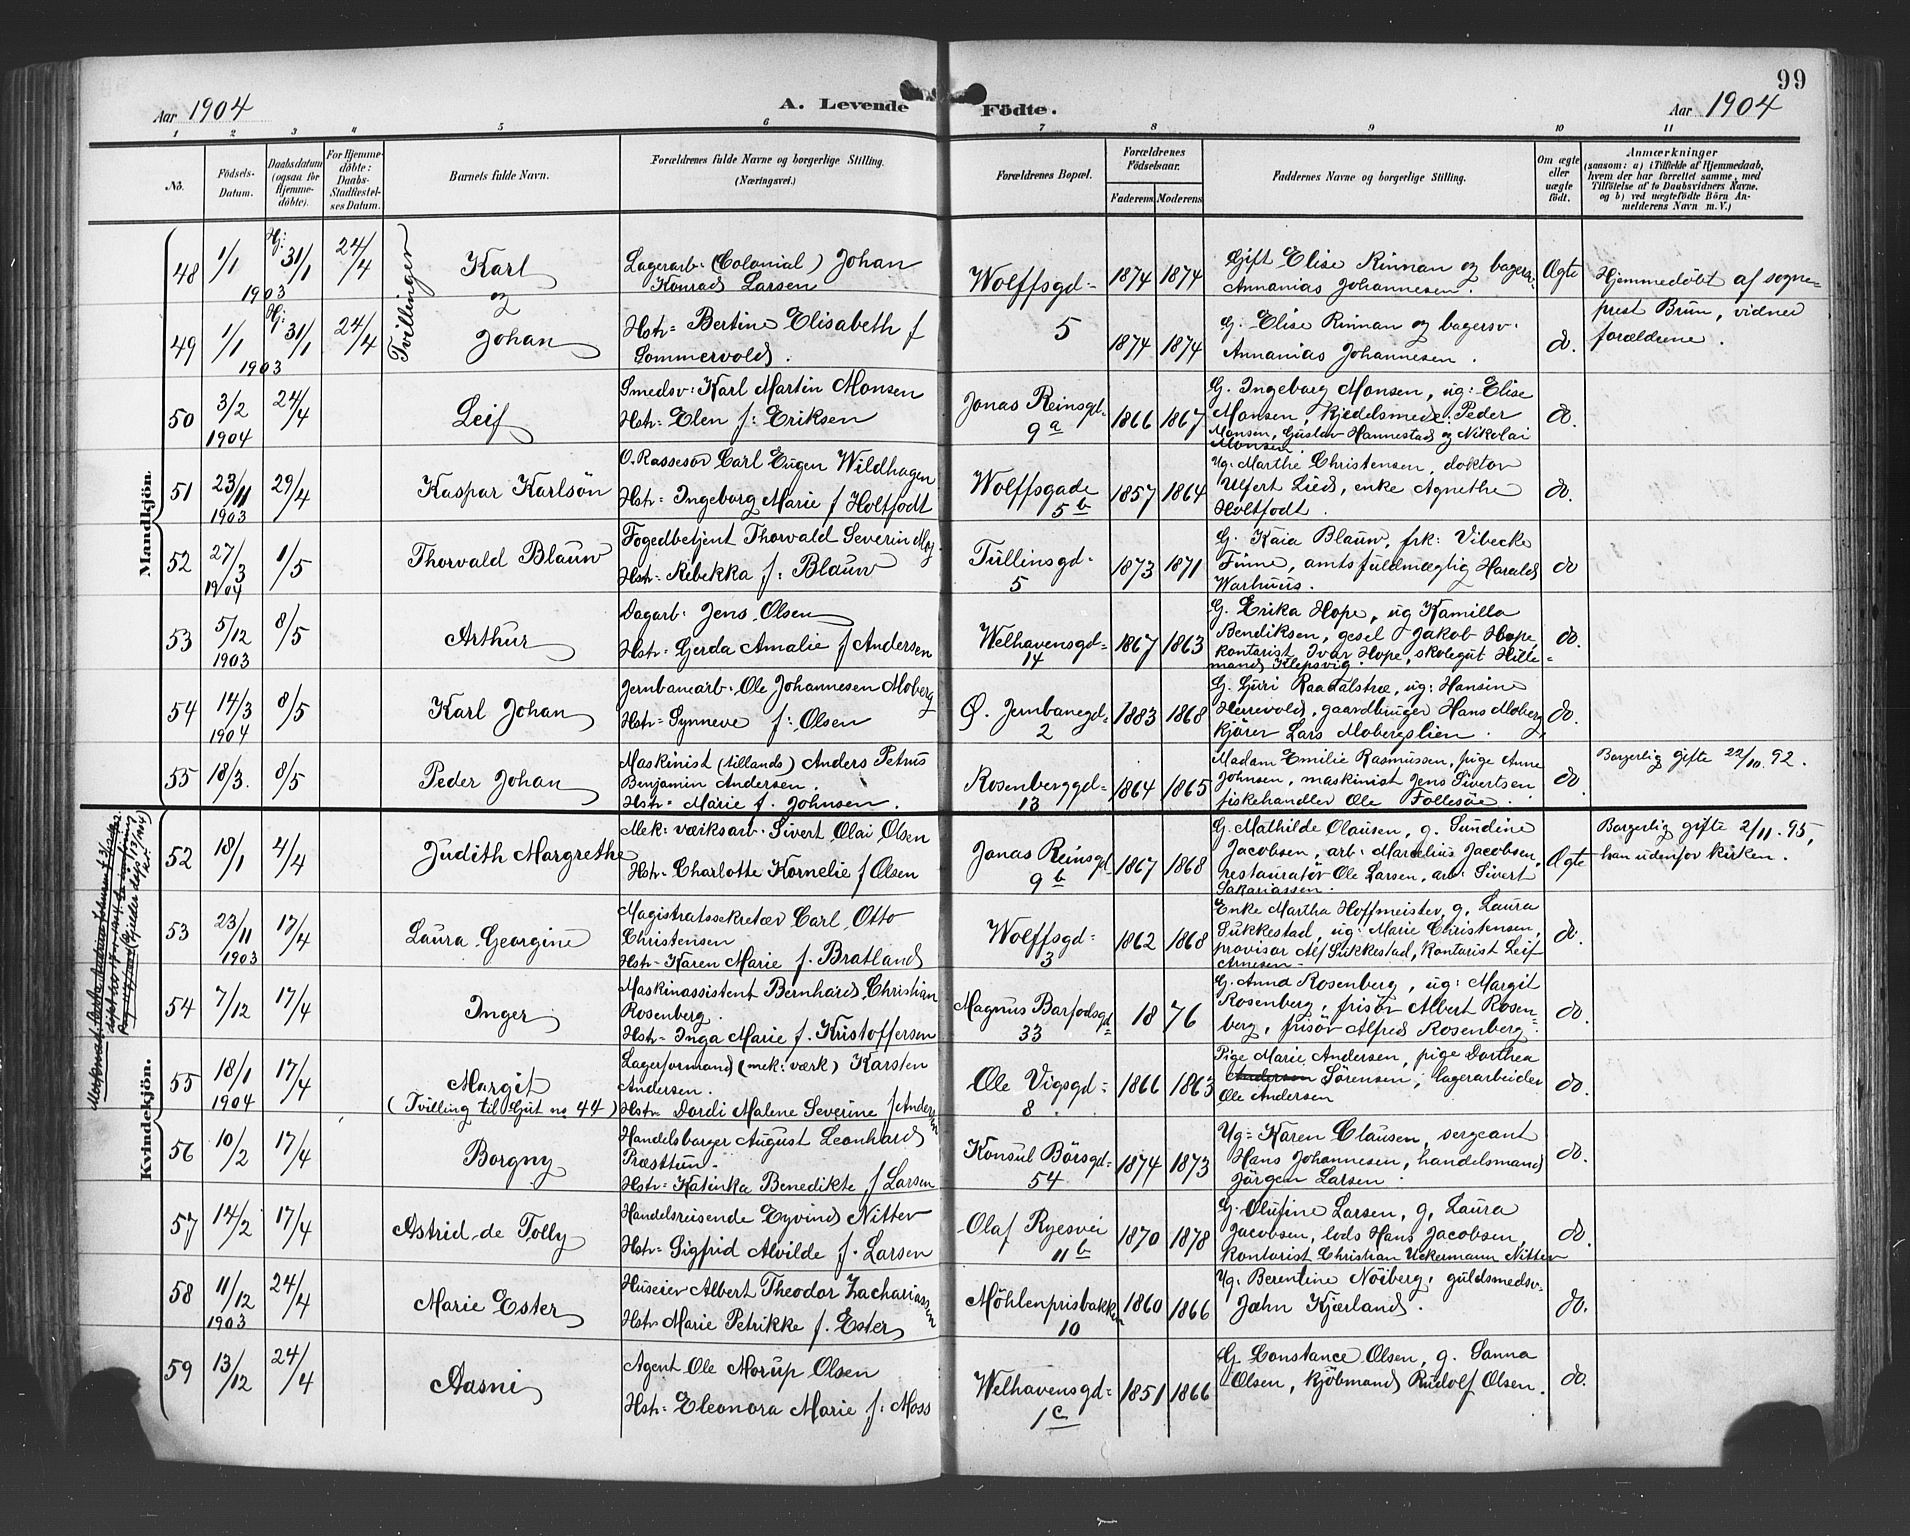 99
Aar 1904 A. Levende Födte. Aar 1904
1 2 3 4 5 6 7 8 9 10 11
No.
Födsels-Datum.
Daabsdatum (ogsaa for Hjemmedöbte).
For Hjemmedöbte: Daabs-Stadfæstelses Datum.
Barnets fulde Navn.
Forældrenes fulde Navne og borgerlige Stilling. (Næringsvei.)
Forældrenes Bopæl.
Forældrenes Födselsaar.
Faderens Moderens
Faddernes Navne og borgerlige Stilling.
Om ægte eller uægte födt.
Anmærkninger
(saasom: a) i Tilfælde af Hjemmedaab, hvem der har forrettet samme, med Tilföielse af to Daabsvidners Navne. og b) ved uægtefödte Börn Anmelderens Navn m. V.)
Mandkjön.
Tvillinger
48 1/1 1903 Hj: 31/1 24/4 Karl
og
Lagerarb: (Colonial) Johan
Konrad Larsen
Wolffsgd- 1874 1874
Gift Elise Rinnan og bagersv.
Annanias Johannesen.
Ægte
Hjemmedöbt af sogne-
prest Brun, vidner
forældrene.
49 1/1 1903 Hj: 31/1 24/4 Johan
Hstr= Bertine Elisabeth f
Sommervold.
5 1874 1874
G. Elise Rinnan og bagersv.
Annanias Johannesen.
do.
50 3/2 1904 24/4 Leif
Smedsv: Karl Martin Monsen
Hstr= Elen f: Eriksen
Jonas Reinsgd. 9a 1866 1867
G. Ingeborg Monsen, ug: Elise
Monsen, kjedelsmed: Peder
Monsen, Gustav Hannestad og Nikolai
Monsen.
do.
51 23/11 1903 29/4 Kaspar Karlsön
O. Rassesor Carl Eugen Wildhagen
Hstr= Ingeborg Marie f Holtfodt
Wolffsgade 5b 1857 1864
Ug. Marthe Christensen, doktor
Ulfert Lied, enke Agnethe
Holtfodt.
do.
52 27/3 1904 1/5 Thorvald Blauw
Fogedbetjent Thorvald Severin Moj
Hstr- Rebekka f: Blauw
Tullinsgd- 5 1873 1871
G. Kaia Blauw, frk: Vibecke
Finne, amtsfuldmægtig Harald
Warhuus.
do
53 5/12 1903 8/5 Arthur
Dagarb: Jens Olsen
Hstr= Gerda Amalie f Andersen
Welhavensgd= 14 1867 1863
G. Erika Hope, ug Kamilla
Bendiksen, gesel Jakob Hope,
kontorist Ivar Hope, skolegut Hille=
mand Klepsvig.
do.
54 14/3 1904 8/5 Karl Johan
Jernbanearb. Ole Johannesen Moberg
Hstr= Synneve f: Olsen
Ø. Jernbanegd= 2 1883 1868
G. Guri Raadalstræ, ug: Hansine
Herrevold, gaardbruger Hans Moberg,
kjörer Lars Mobergslien.
do.
55 18/3. 8/5 Peder Johan
Maskinist (tillands) Anders Petrus
Benjamin Andersen,
Hstr= Marie f. Johnsen.
Rosenberggd= 13 1864 1865
Madam Emilie Rasmussen, pige Anne
Johnsen, maskinist Jens Sivertsen
fiskehandler Ole Follesöe.
do.
Borgerlig gifte 22/10. 92.
Kvindekjön.
52 18/1 4/4 Judith Margrethe
Mek: værksarb. Sivert Olai Olsen
Hstr- Charlotte Kornelie f Olsen
Jonas Reinsgd 9b 1867 1868
G. Mathilde Olausen, g. Gundine
Jacobsen, arb: Marcelius Jacobsen,
restauratør Ole Larsen, arb: Sivert
Sakariassen.
Ægte
Borgerlig gifte 2/11. 95,
han udenfor kirken.
53 23/11 1903 17/4 Laura Georgine
Magistratssekretær Carl Otto
Christensen
Hstr- Karen Marie f. Bratland
Wolffsgd= 3 1862 1868
Enke Martha Hoffmeister, g. Laura
Sukkestad, ug: Marie Christensen,
provisor Alf Sukkestad, kontorist Leif
Arnesen
do.
54 7/12 17/4 Inger
Maskinassistent Bernhard Christian
Rosenberg.
Hstr- Inga Marie f. Kristoffersen
Magnus Barfodsgd= 33 18 76
G. Anna Rosenberg, ug: Margit
Rosenberg, frisør Albert Rosen=
berg, frisör Alfred Rosenberg
do.
55 18/1 1904 17/4 Margit
(Tvilling til Gut no 44)
Lagerformand (mek: værk) Karsten
Andersen.
Hstr- Dordi Malene Severine f Andersen
Ole Vigsgd= 8. 1866 1863
Pige Marie Andersen, pige Dorthea
Andersen Sörensen, lagerarbeider
Ole Andersen
do.
56 10/2 17/4 Borgny
Handelsborger August Leonhard
Præsttun.
Hstr= Katinka Benedikte f Larsen
Konsul Börsgd= 54 1874 1873
Ug= Karen Clausen, sergeant
Hans Johannesen, handelsmand
Jörgen Larsen.
do.
57 14/2 17/4 Astrid de Tolly
Handelsreisende Eyvind Nitter
Hstr= Sigfrid Alvilde f. Larsen
Olaf Ryesvei 11b 1870 1878
G. Olufine Larsen, g. Laura
Jacobsen, lods Hans Jacobsen,
kontorist Christian Uckermann Nitter
do.
58 11/12 1903 24/4 Marie Ester
Huseier Albert Theodor Zachariassen
Hstr Marie Petrikke f. Ester
Möhlenprisbakken 10 1860 1866
Ug. Berentine Nöiberg, guldsmedsv.
John Kjærland.
do.
59 13/12 24/4 Aasni
Agent Ole Morup Olsen
Hstr= Eleonora Marie f: Moss
Welhavensgd= 1c 1851 1866
G. Constance Olsen, g. Sanna
Olsen, kjöbmand Rudolf Olsen.
do.